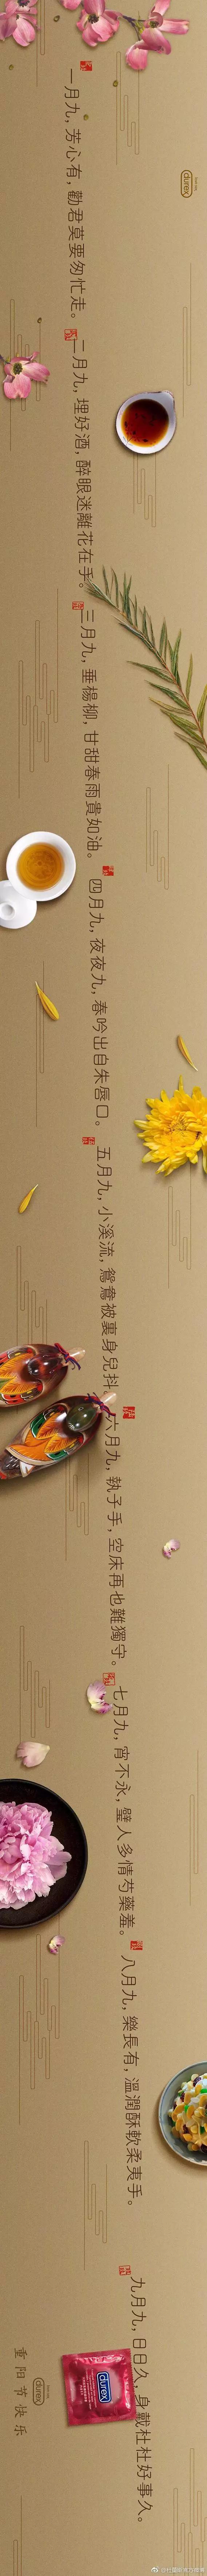 durex
一月九，芳心有，勸君莫要匆忙走。
二月九，埋好酒，醉眼迷離花在手。
三月九，垂楊柳，甘甜春雨貴如油。
四月九，夜夜九，春吟出自朱唇口。
五月九，小溪流，鴛鴦被裏身兒抖。
六月九，執子手，空床再也難獨守。
七月九，宵不永，璧人多情芍藥羞。
八月九，樂長有，溫潤酥軟柔夷手。
九月九，日日久，身戴杜杜好事久。
durex
durex
重阳节快乐